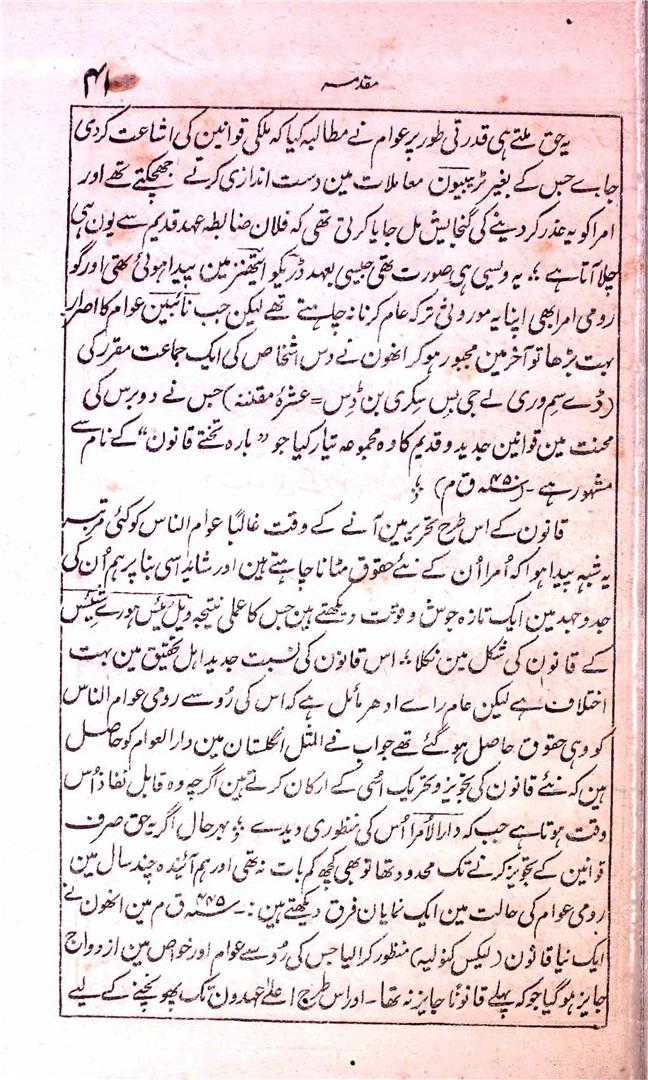 مقدمہ ۴۱
یہ حق ملتے ہی قدرتی طور پر عوام نے مطالبہ کیا کہ ملکی قوانین کی اشاعت کردی
جاے جس کے بغیر ٹریبیون معاملات مین دست اندازی کرتے جھجکتے تھے اور
امرا کو یہ عذر کر دینے کی گنجایش مل جایا کرتی تھی کہ فلان ضابطہ عہد قدیم سے یون ہی
چلا آتا ہے ؛؛ یہ ویسی ہی صورت تھی جیسی بعہد ڈریکو ایتھنز مین پیدا ہوئی تھی اور گو
رومی امرا بھی اپنا یہ موروثی ترکہ عام کرنا نہ چاہتے تھے لیکن جب نائبین عوام کا اصرار
بہت بڑھا تو آخر مین مجبور ہو کر انھون نے دس اشخاص کی ایک جماعت مقرر کی
(ڈے سم وری لے جی بس سکری بن ڈس = عشرۂ مقننہ) جس نے دو برس کی
محنت مین قوانین جدید و قدیم کا وہ مجموعہ تیار کیا جو "بارہ تختے قانون" کے نام سے
مشہور ہے - (۴۵۰ ق م) ؛؛
قانون کے اس طرح تحریر مین آنے کے وقت غالباً عوام الناس کو کئی مرتبہ
یہ شبہ پیدا ہوا کہ اُمرا اُن کے نئے حقوق مٹانا چاہتے ہین اور شاید اسی بنا پر ہم اُن کی
جدوجہد مین ایک تازہ جوش و قوت دیکھتے ہین جس کا عملی نتیجہ ویل ئیس ہورے شیئس
کے قانون کی شکل مین نکلا ؛؛ اس قانون کی نسبت جدید اہل تحقیق مین بہت
اختلاف ہے لیکن عام راے ادھر مائل ہے کہ اس کی رُو سے رومی عوام الناس
کو وہی حقوق حاصل ہو گئے تھے جواب فے المثل انگلستان مین دارالعوام کو حاصل
ہین کہ نئے قانون کی تجویز و تحریک اُسی کے ارکان کرتے ہین اگرچہ وہ قابل نفاذ اُس
وقت ہوتا ہے جب کہ دارالاُمرا اُس کی منظوری دیدے ؛؛ بہرحال اگر یہ حق صرف
قوانین کے تجویز کرنے تک محدود تھا تو بھی کچھ کم بات نہ تھی اور ہم آئندہ چند سال مین
رومی عوام کی حالت مین ایک نمایان فرق دیکھتے ہین :- ۴۴۵ ق م مین انھون نے
ایک نیا قانون (لیکس کنولیہ) منظور کرالیا جس کی رُو سے عوام اور خواص مین ازدواج
جایز ہو گیا جو کہ پہلے قانوناً جایز نہ تھا - اور اس طرح اعلےٰ عہدون تک پہونچنے کے لیے